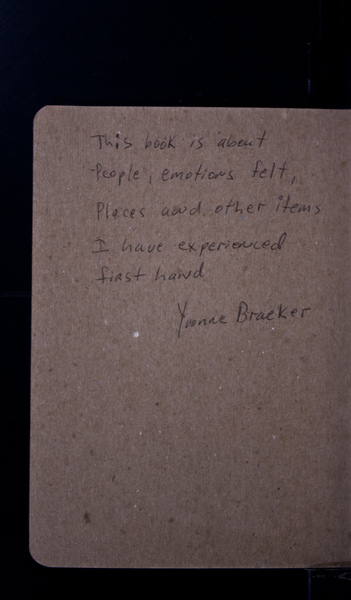 This book is about
People, emotions felt,
Places and other items
I have experienced
first hand
Yvonne Braeker